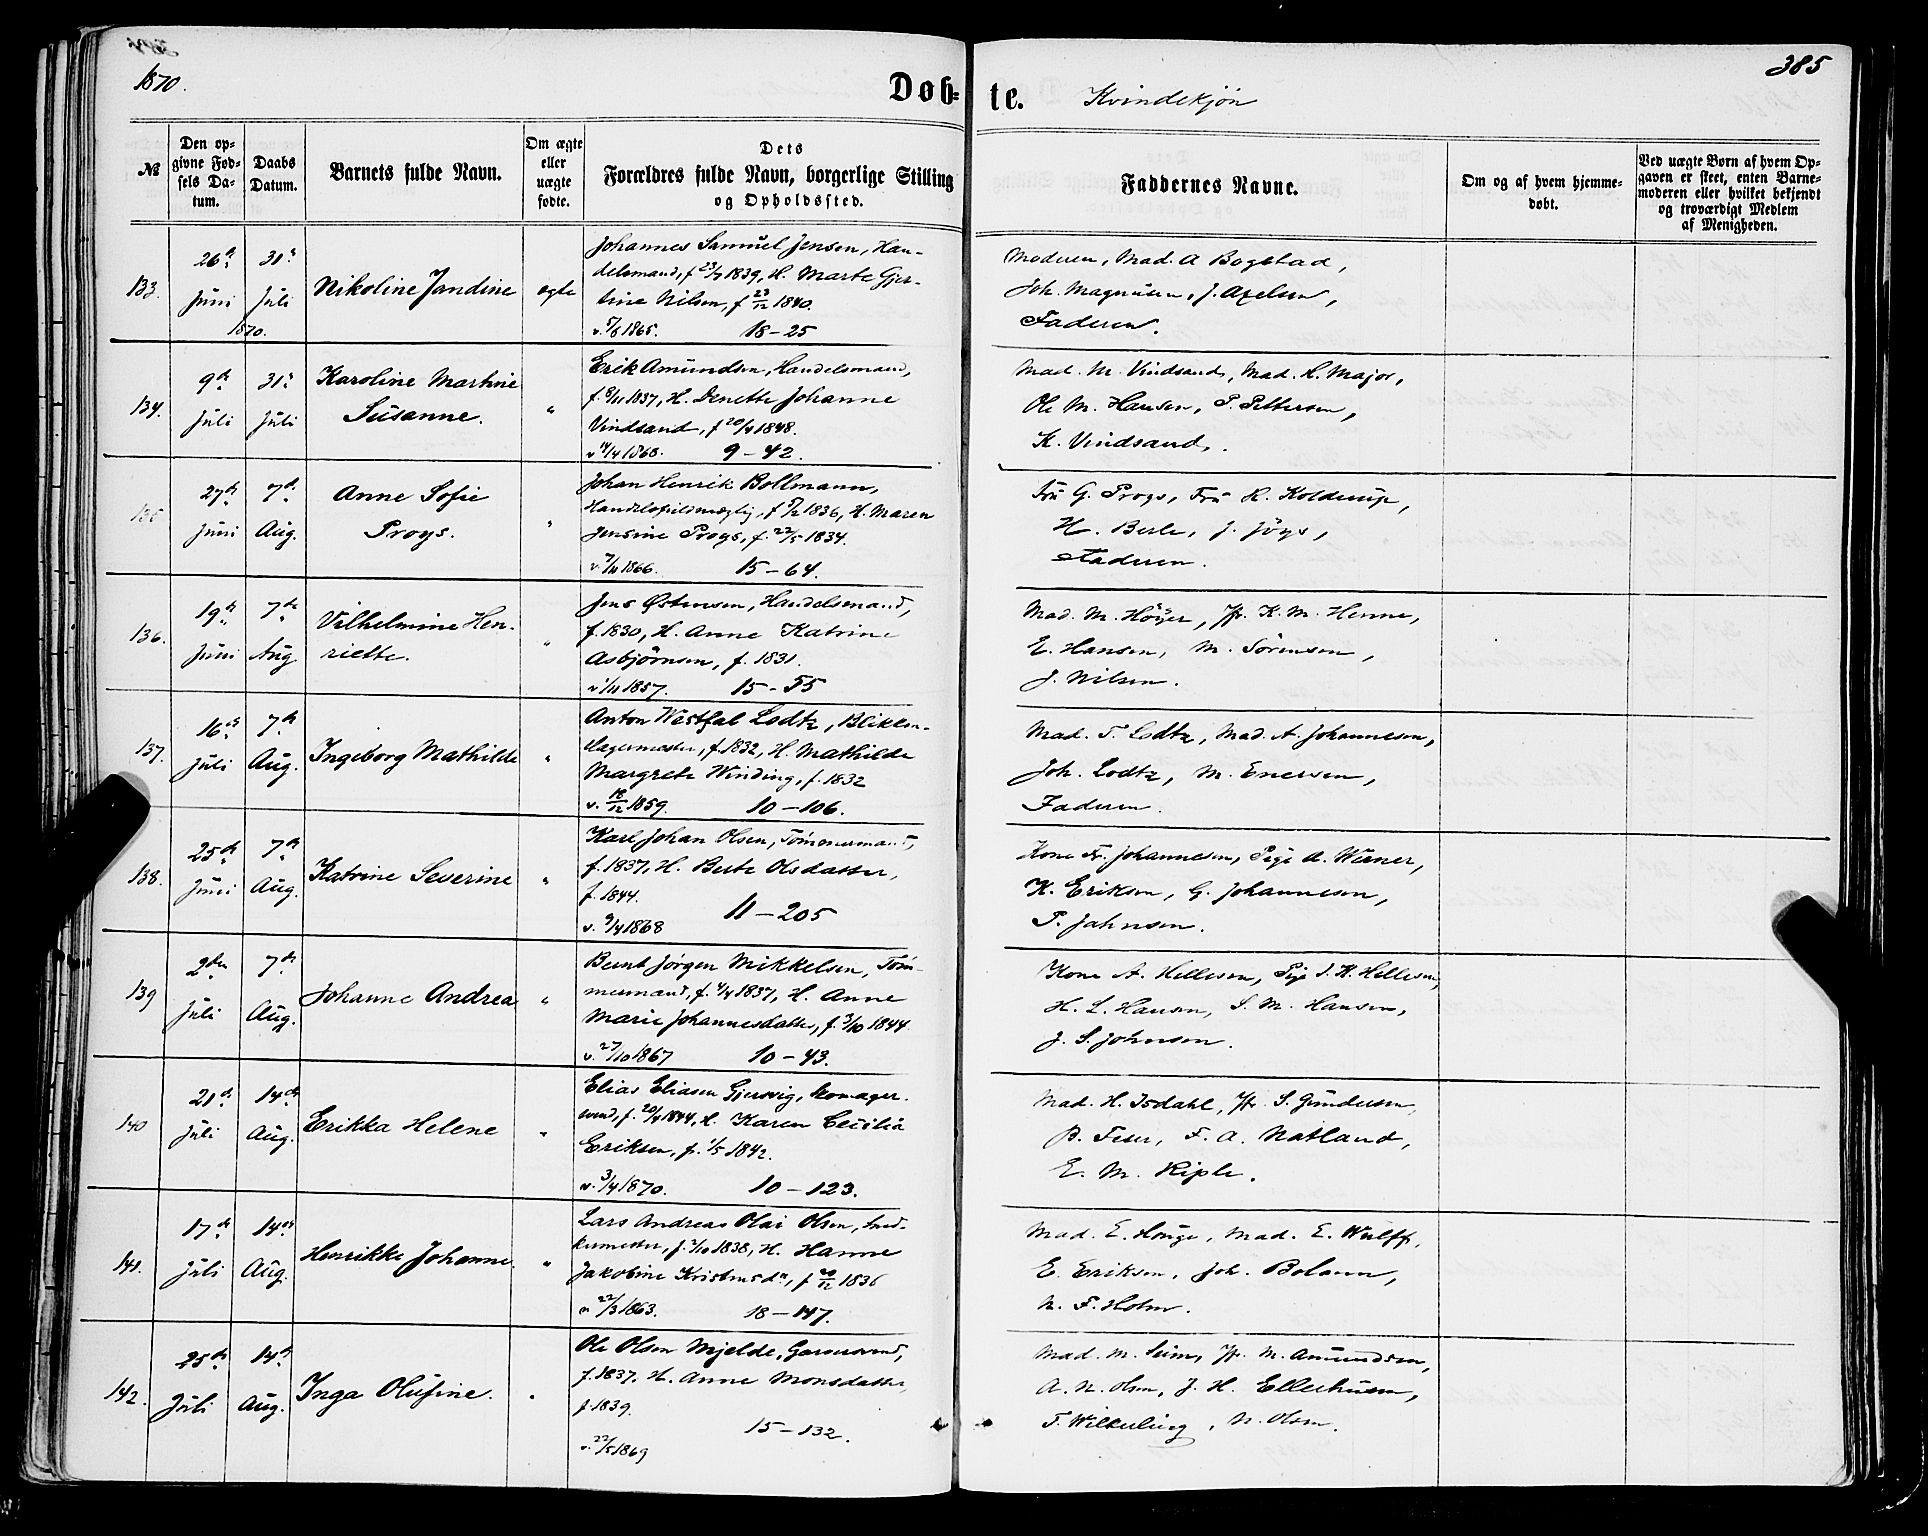 1870.
385
Døb=
te.
Kvindekjøn
№
Den op-
givne Fød-
sels Da-
tum.
Daabs
Datum.
Barnets fulde Navn.
Om ægte
eller
uægte
fødte.
Dets
Forældres fulde Navn, borgerlige Stilling
og Opholdssted.
Faddernes Navne.
Om og af hvem hjemme-
døbt.
Ved uægte Børn af hvem Op-
gaven er skeet, enten Barne-
moderen eller hvilket bekjendt
og troværdigt Medlem
af Menigheden.
133.
26de
Juni
31te
Juli
1870.
Nikoline Jandine
ægte
Johannes Samuel Jensen, Han-
delsmand, f 1839, H. Marte Gjer-
tine Nilsen, f 23/12 1840.
v. 5/8 1865. 18-25
Moderen, Mad. A Bogstad,
Joh. Magnusen, J. Axelsen,
Faderen.
134.
9de
Juli
31te
Juli
Karoline Martine
Susanne.
"
Erik Amundsen, Handelsmand,
f. 6/11 1837, H. Denette Johanne
Vindsand, f 20/4 1848.
v 14/4 1868. 9-42.
Mad. M. Vindsand, Mad. R. Major,
Ole M. Hansen, P. Pettersen,
K. Vindsand.
135
27de
Juni
7de
Aug.
Anne Sofie
Proys.
"
Johan Henrik Bollmann,
Handelsfuldmægtig, f 1836, H. Maren
Jensine Proys, f. 22/5 1834.
v 7/11 1866. 15-64.
Fru G. Proys, Fru R. Kolderup,
H. Berle, J. Jöys,
Faderen.
136.
19de
Juni
7de
Aug
Vilhelmine Hen-
riette.
"
Jens Østensen, Handelsmand,
f. 1830, H. Anne Katrine
Asbjörnsen, f. 1831.
v 1/11 1857. 15-55
Mad. M. Höyer, Jfr. K. M. Henne,
E. Hansen, M. Sörensen,
J. Nilsen.
137.
16de
Juli
7de
Aug.
Ingeborg Mathilde
"
Anton Westfal Lodtz, Blikken-
slagermester, f. 1832, H. Mathilde
Margrete Winding, f. 1832
v. 18/12 1859. 10-106.
Mad. T. Lodtz, Mad. A. Johannesen,
Joh. Lodtz, M. Enersen,
Faderen.
138.
25de
Juni
7de
Aug.
Katrine Severine
"
Karl Johan Olsen, Tömmermand,
f. 1837, H. Berte Olsdatter,
f. 1844.
v. 9/4 1868 11-205
Kone Fr. Johannesen, Pige A. Werner,
K. Eriksen, G. Johannesen,
P. Jahnsen.
139
2den
Juli
7de
Aug.
Johanne Andrea
"
Bernt Jörgen Mikkelsen, Töm-
mermand, f. 4/4 1837, H. Anne
Marie Johannesdatter, f. 3/10 1844
v. 27/10 1867 10-43.
Kone A. Hellesen, Pige S. K. Hellesen,
H. L. Hansen, S. M. Hansen,
J. S. Johnsen.
140
21de
Juli
14de
Aug.
Erikka Helene
"
Elias Eliasen Gjersvig, Skomager-
svend, f. 20/4 1844, H. Karen Cecilia
Eriksen, f. 1/5 1842.
v. 3/4 1870. 10-123.
Mad. H. Isdahl, Jfr. S. Gundersen,
F. A. Natland,
E. M. Riple.
141.
17de
Juli
14de
Aug.
Henrikke Johanne
"
Lars Andreas Olai Olsen, Sned-
kermester, f. 2/10 1838, H. Hanne
Jakobine Kristensdr, f 20/12 1836
v 22/3 1863. 18-147.
Mad. E. Houge, Mad. E. Wulff,
E. Eriksen, Joh. Bolann,
N. F. Holm.
142.
25de
Juli
14de
Aug.
Inga Olufine.
"
Ole Olsen Mjelde, Garversvend,
f. 1837. H. Anne Monsdatter,
f. 1839.
15-132.
v. 22/5 1869
Mad. M. Seim, Jfr. M. Amundsen,
A. N. Olsen, J. H. Ellerhusen,
N. Olsen.